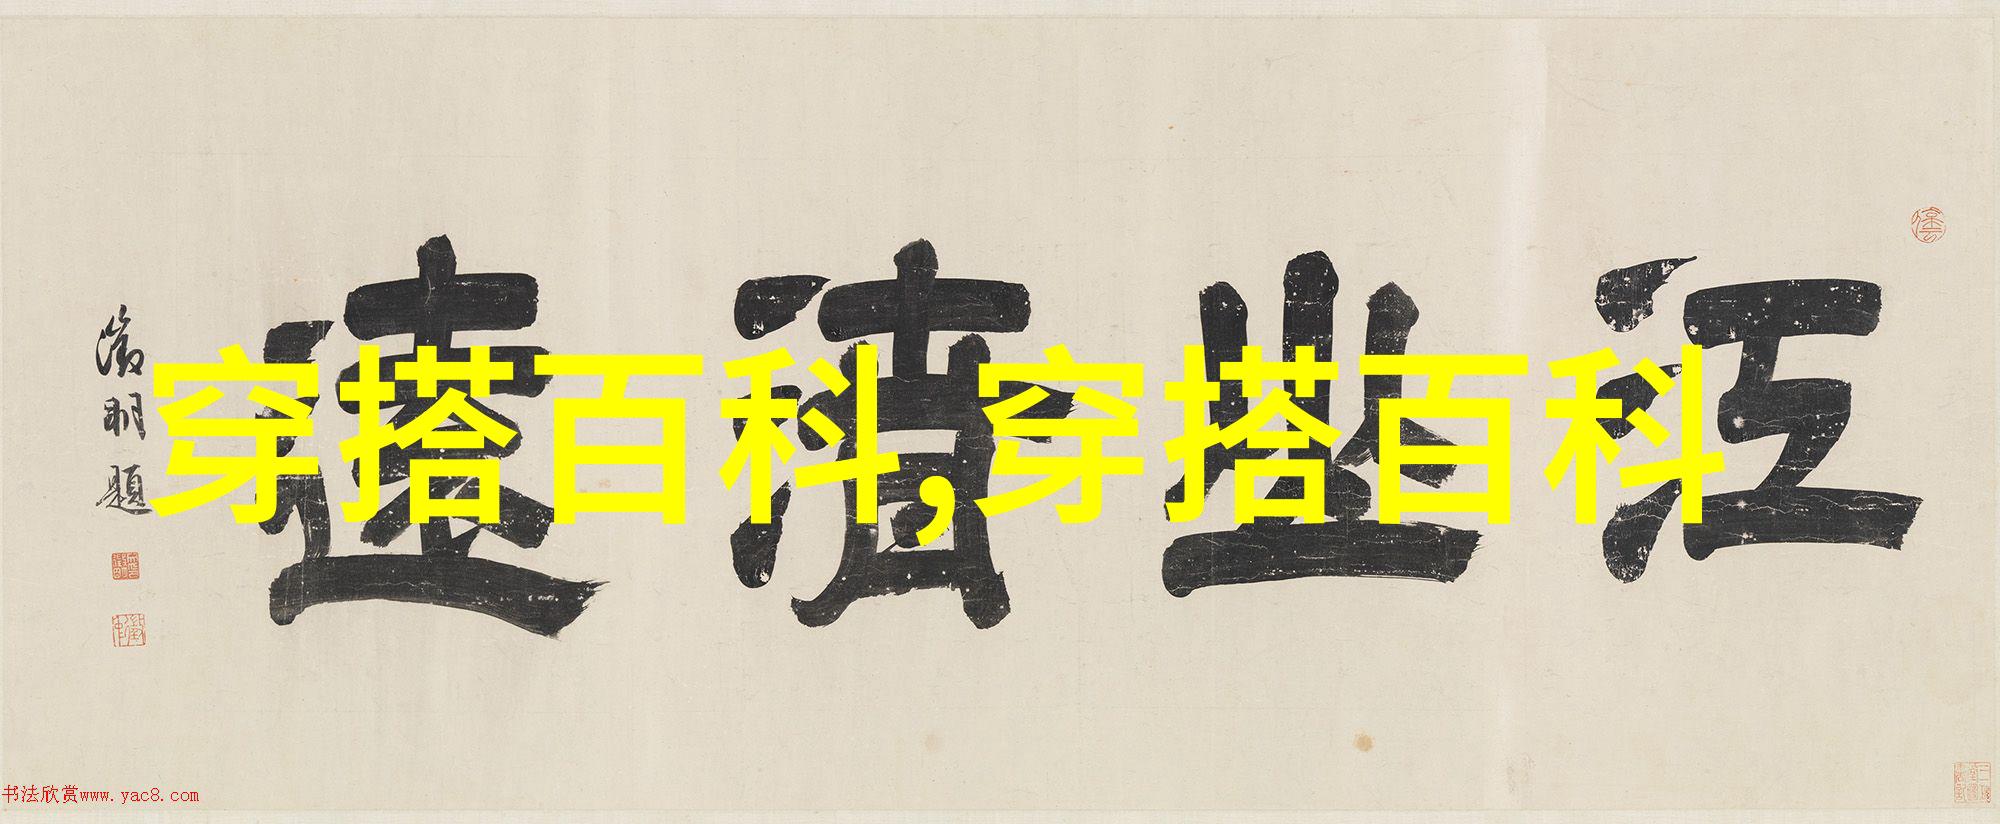 穿搭百科,穿搭百科
江山清遠
徵明題
书法欣赏www.yac8.com